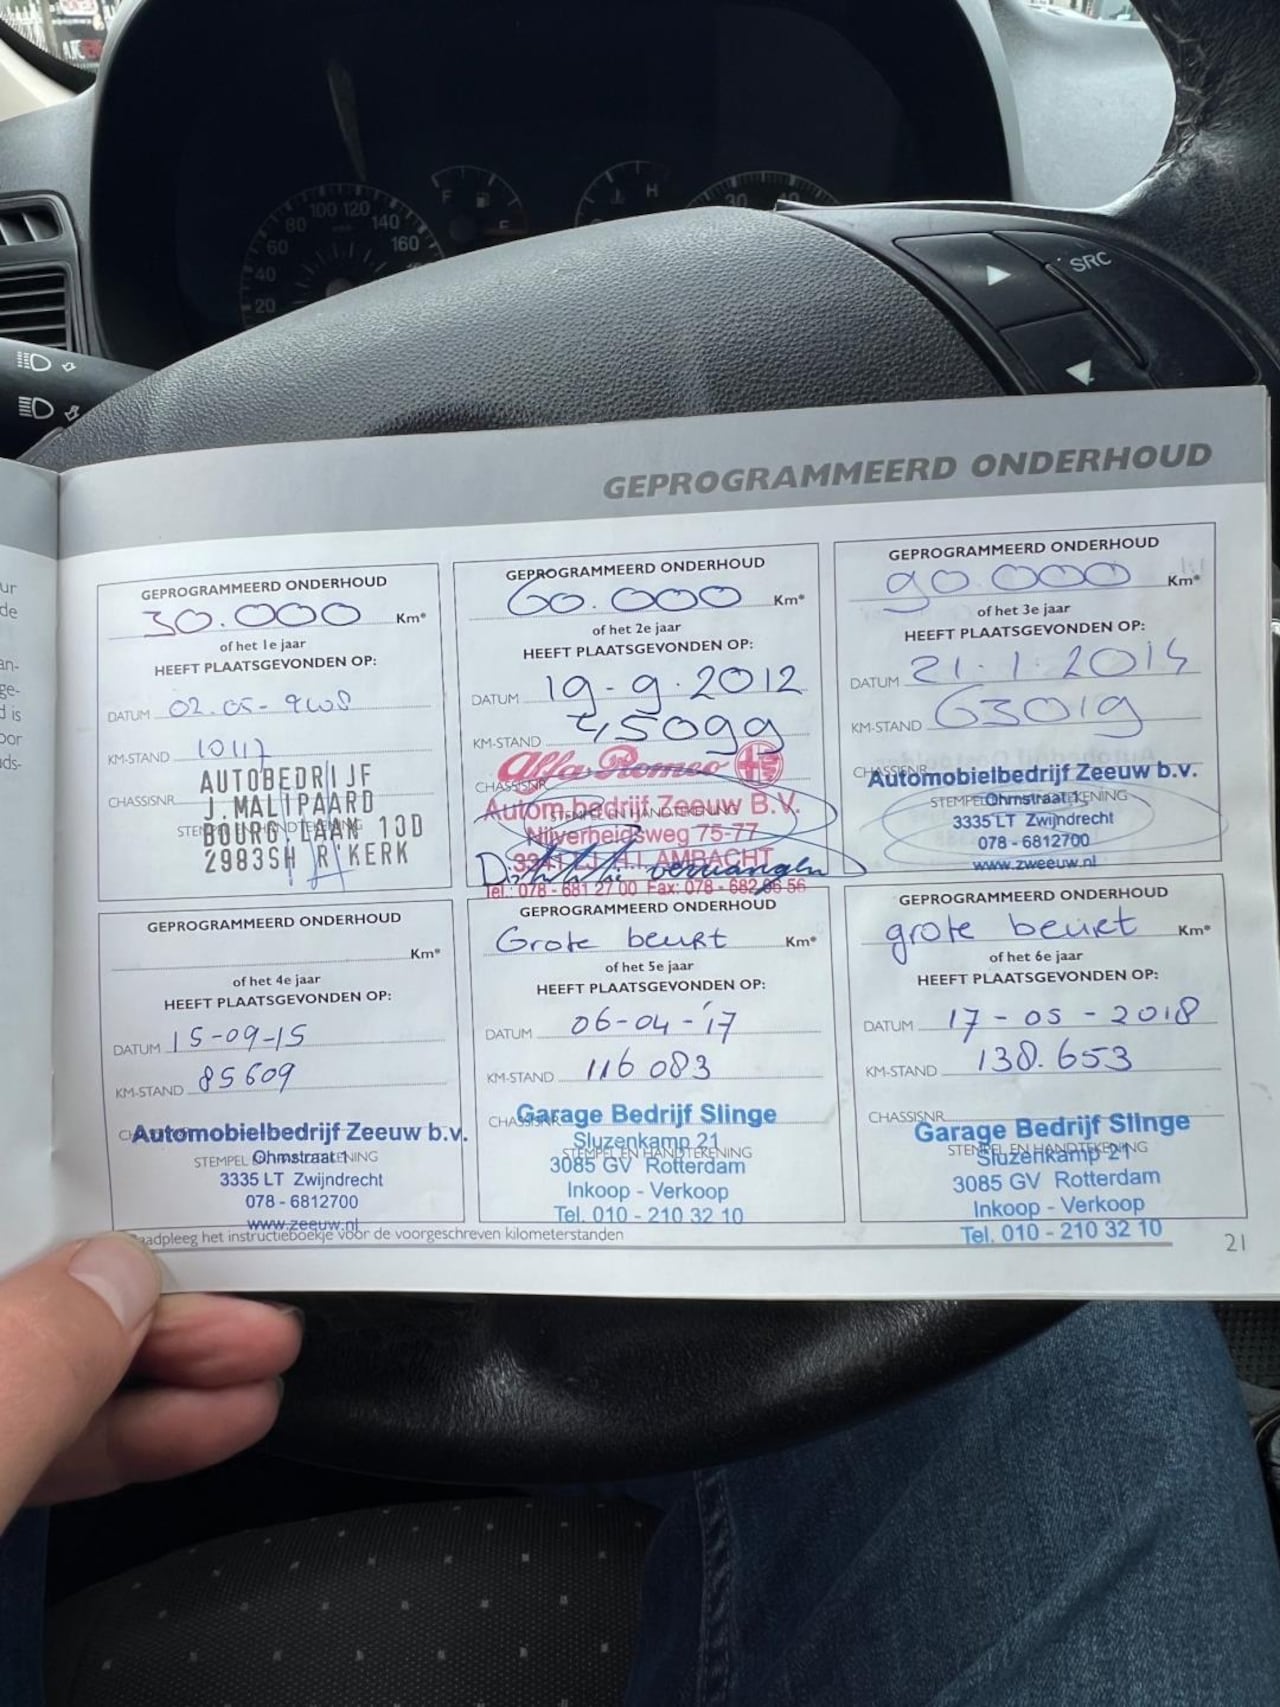 100 120
80
140
60
160
40
20
F
E
H
30
40
SRC
GEPROGRAMMEERD ONDERHOUD
GEPROGRAMMEERD ONDERHOUD
30.000 Km*
of het 1e jaar
HEEFT PLAATSGEVONDEN OP:
DATUM 02.05-2008
KM-STAND 10117
CHASSISNR.
AUTOBEDRIJF
J. MALIPAARD
BOURG. LAAN 13D
2983SH R'KERK
GEPROGRAMMEERD ONDERHOUD
60.000 Km*
of het 2e jaar
HEEFT PLAATSGEVONDEN OP:
DATUM 19-9-2012
KM-STAND 45099
Alfa Romeo
CHASSISNR.
Autom.bedrijf Zeeuw B.V.
STEMPEL EN HANDTEKENING
Nijverheidsweg 75-77
3341 LJ H.I. AMBACHT
Distributie vervangen
Tel.: 078 - 681 27 00 Fax: 078 - 682 86 56
GEPROGRAMMEERD ONDERHOUD
90.000 Km*
of het 3e jaar
HEEFT PLAATSGEVONDEN OP:
DATUM 21.1.2014
KM-STAND 63019
CHASSISNR.
Automobielbedrijf Zeeuw b.v.
STEMPEL EN HANDTEKENING
Ohmstraat 1
3335 LT Zwijndrecht
078 - 6812700
www.zweeuw.nl
GEPROGRAMMEERD ONDERHOUD
Km*
of het 4e jaar
HEEFT PLAATSGEVONDEN OP:
DATUM 15-09-15
KM-STAND 85609
Automobielbedrijf Zeeuw b.v.
STEMPEL EN HANDTEKENING
Ohmstraat 1
3335 LT Zwijndrecht
078 - 6812700
www.zeeuw.nl
GEPROGRAMMEERD ONDERHOUD
Grote beurt Km*
of het 5e jaar
HEEFT PLAATSGEVONDEN OP:
DATUM 06-04-'17
KM-STAND 116083
CHASSISNR.
Garage Bedrijf Slinge
Sluzenkamp 21
STEMPEL EN HANDTEKENING
3085 GV Rotterdam
Inkoop - Verkoop
Tel. 010 - 210 32 10
GEPROGRAMMEERD ONDERHOUD
grote beurt Km*
of het 6e jaar
HEEFT PLAATSGEVONDEN OP:
DATUM 17-05-2018
KM-STAND 138.653
CHASSISNR.
Garage Bedrijf Slinge
STEMPEL EN HANDTEKENING
Sluzenkamp 21
3085 GV Rotterdam
Inkoop - Verkoop
Tel. 010 - 210 32 10
het instructieboekje voor de voorgeschreven kilometerstanden
21